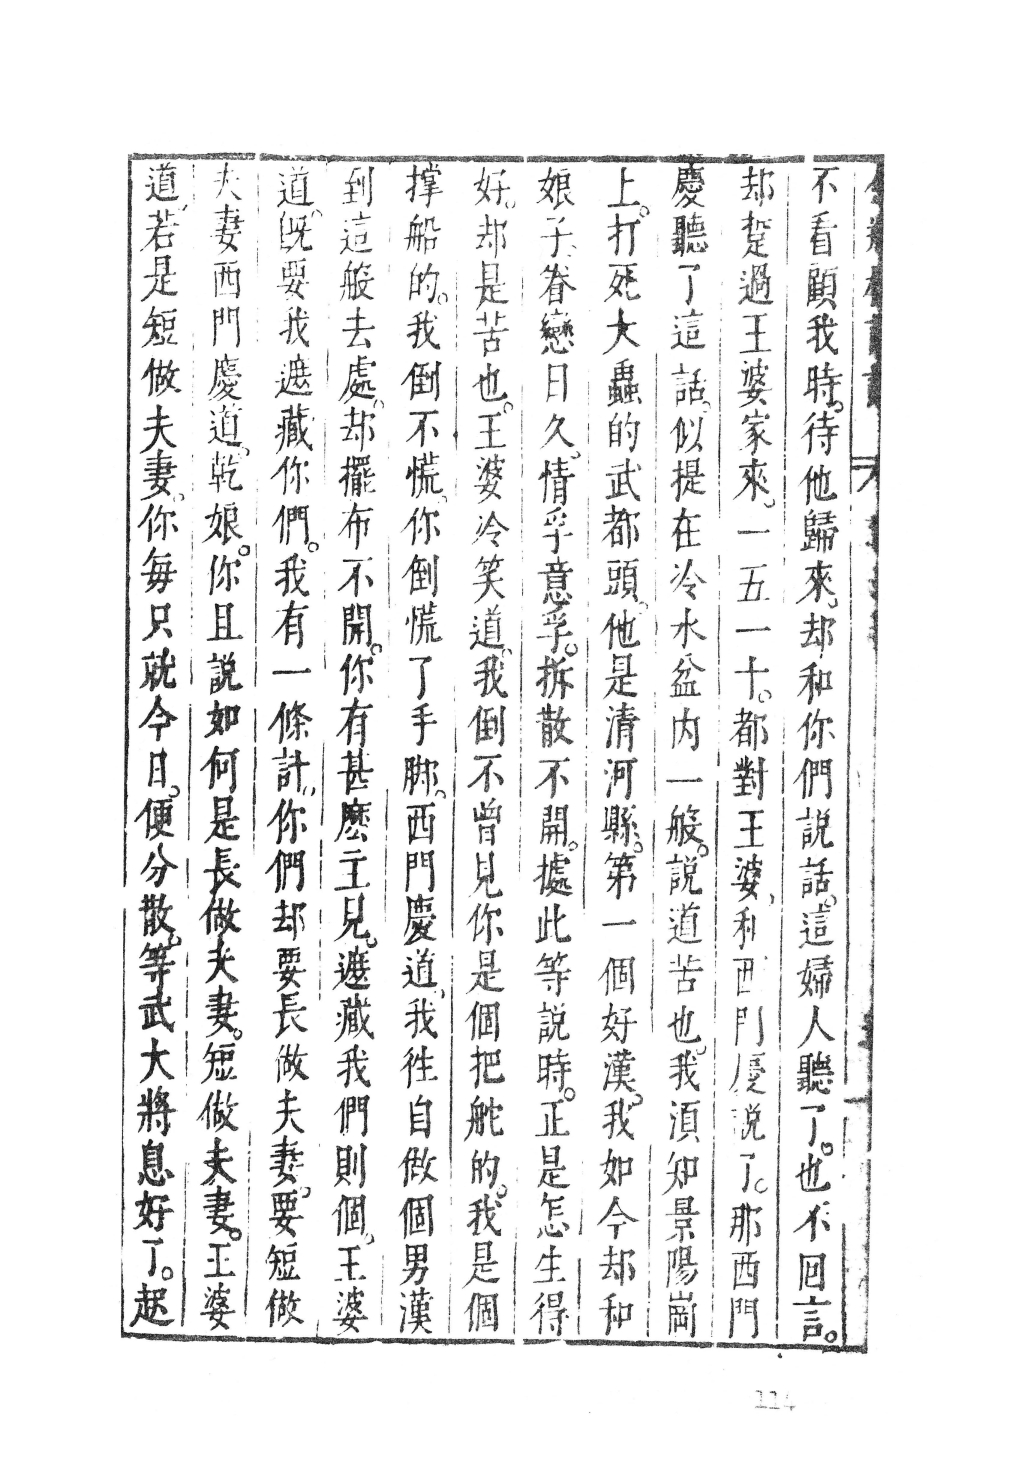 不看顧我時。待他歸來。却和你們說話。這婦人聽了。也不回言。
却踅過王婆家來。一五一十。都對王婆。和西門慶說了。那西門
慶聽了這話。似提在冷水盆内一般。說道苦也。我須知景陽崗
上。打死大蟲的武都頭。他是清河縣。第一個好漢。我如今却和
娘子。眷戀日久。情孚意孚。拆散不開。據此等說時。正是怎生得
好。却是苦也。王婆冷笑道。我倒不曾見你是個把舵的。我是個
撑船的。我倒不慌。你倒慌了手脚。西門慶道。我徃自做個男漢
到這般去處。却擺布不開。你有甚麽主見。遮藏我們則個。王婆
道。既要我遮藏你們。我有一條計。你們却要長做夫妻。要短做
夫妻西門慶道。乾娘。你且說如何是長做夫妻。短做夫妻。王婆
道。若是短做夫妻。你每只就今日。便分散。等武大將息好了。起
114